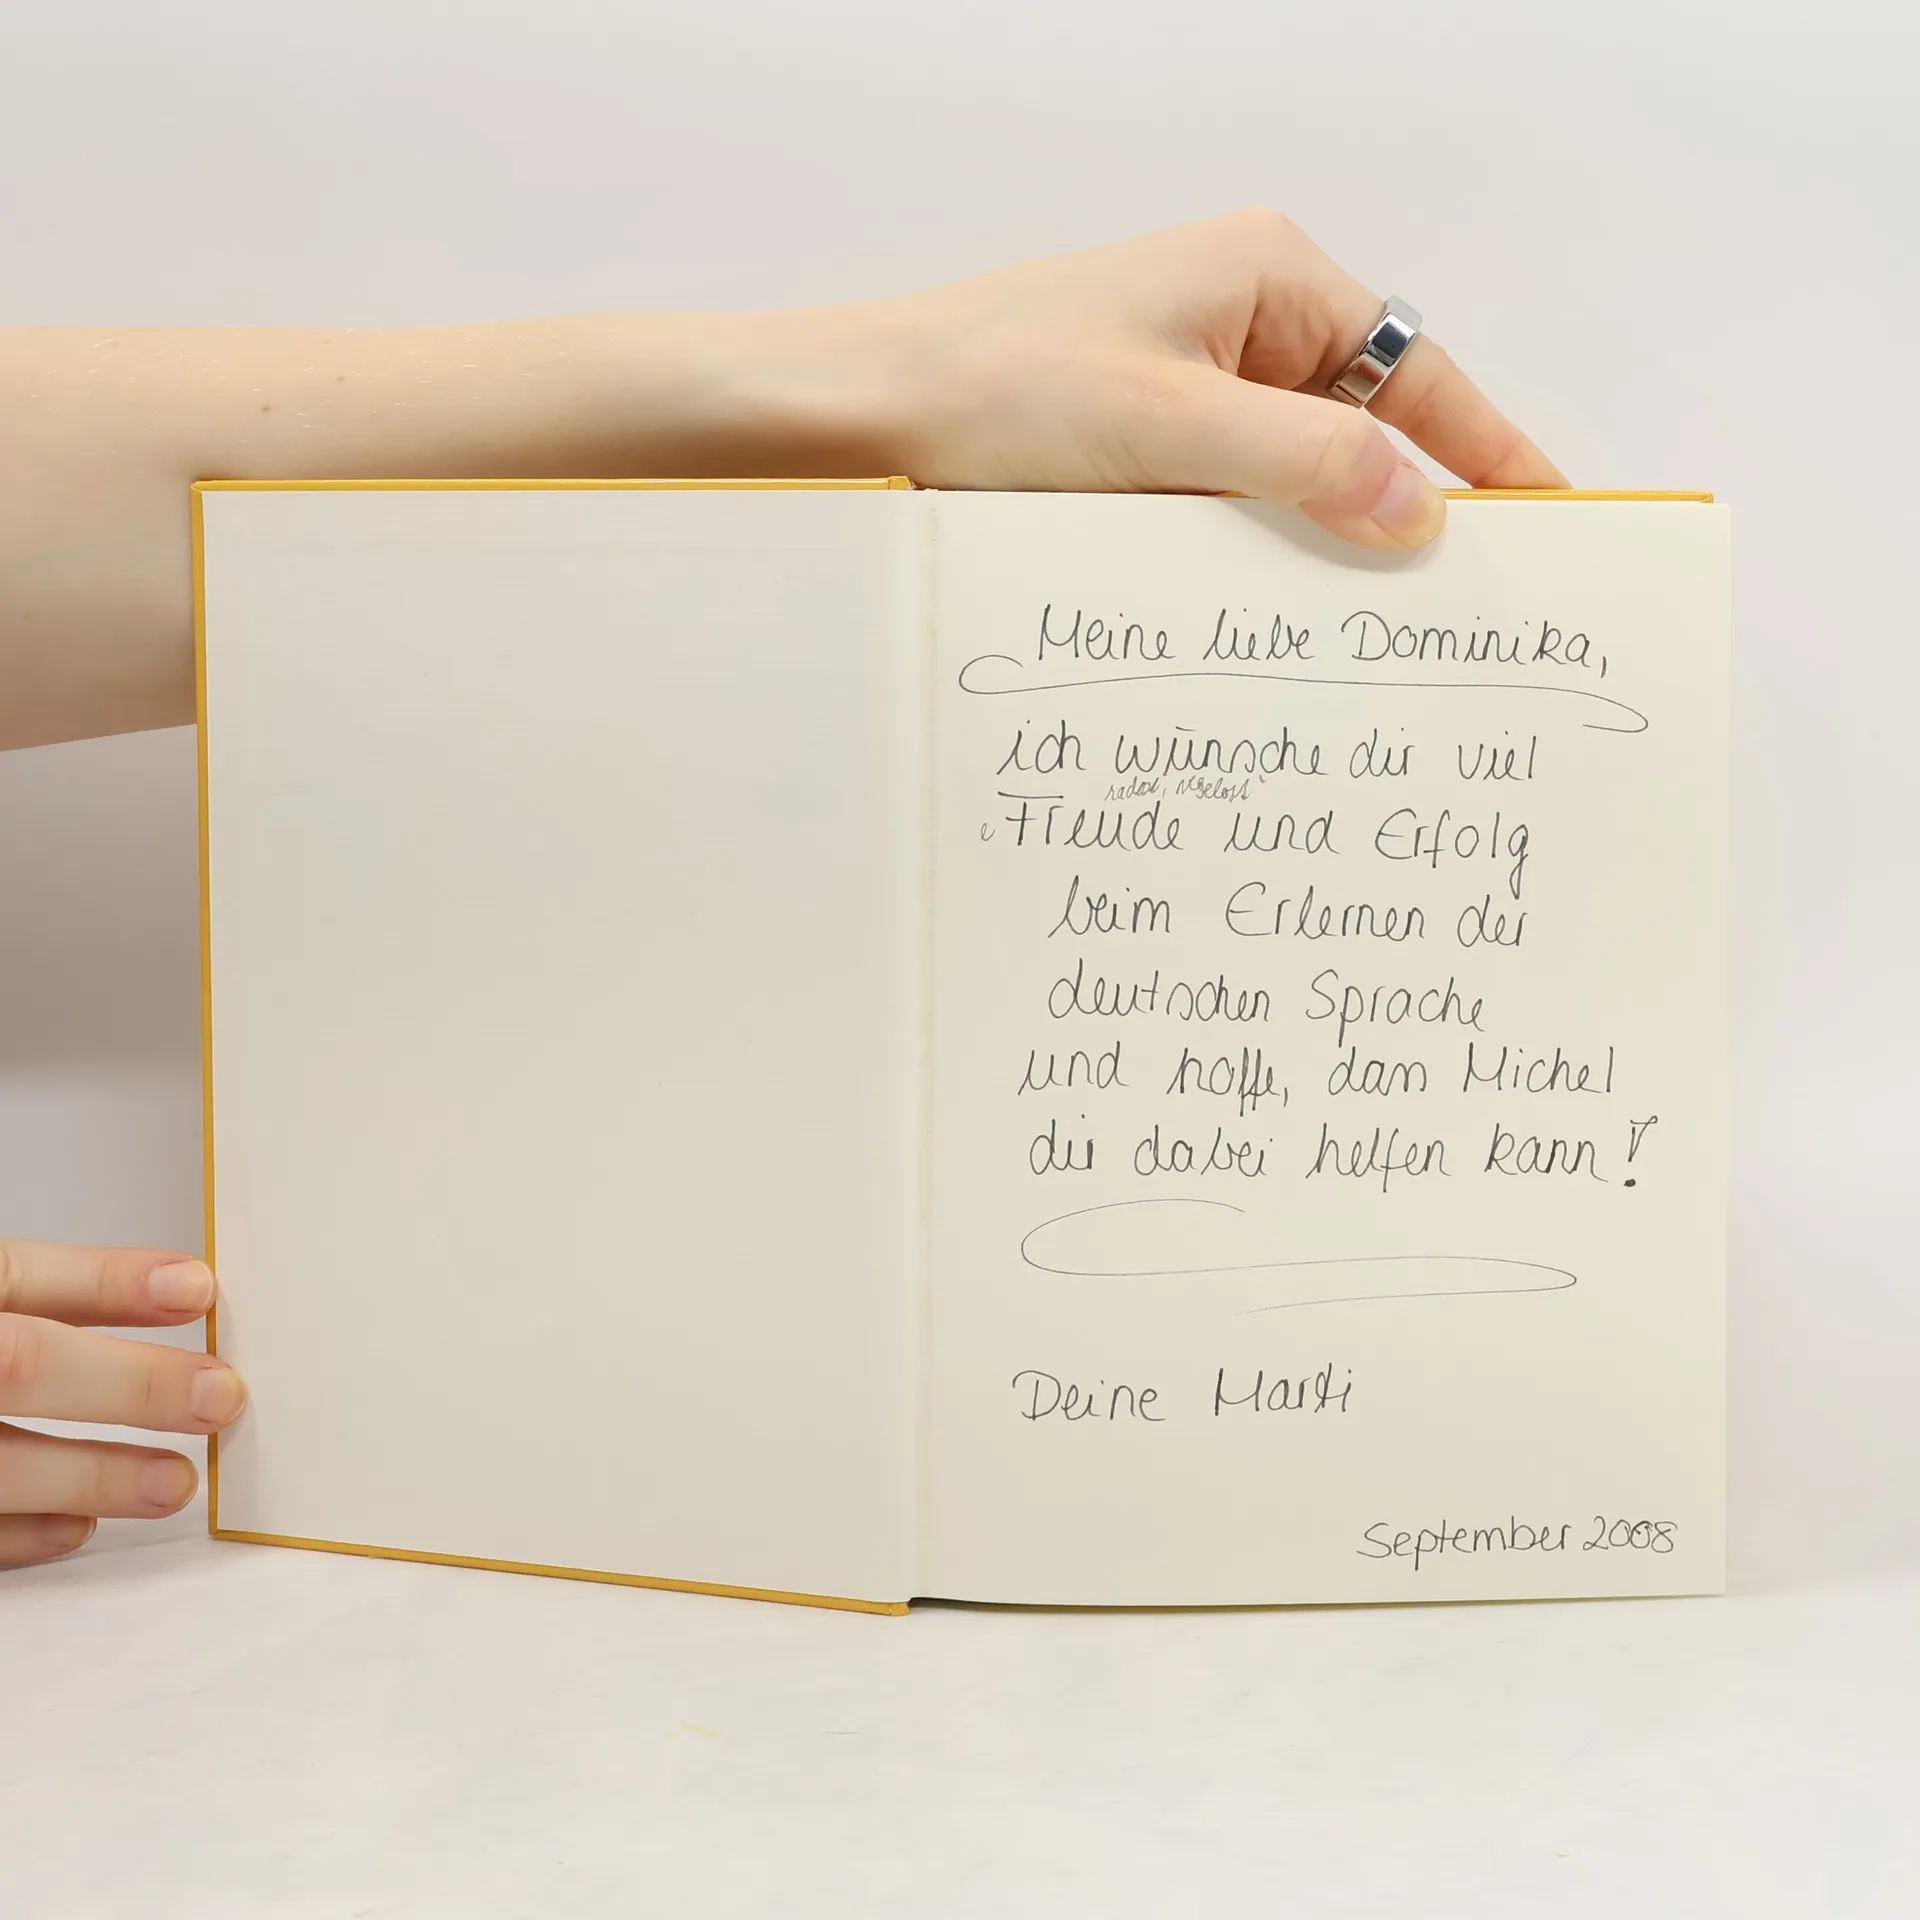 Meine liebe Dominika,
ich wünsche dir viel
radost, veselost
Freude und Erfolg
beim Erlernen der
deutschen Sprache
und hoffe, dass Michel
dir dabei helfen kann!
Deine Mardi
September 2008